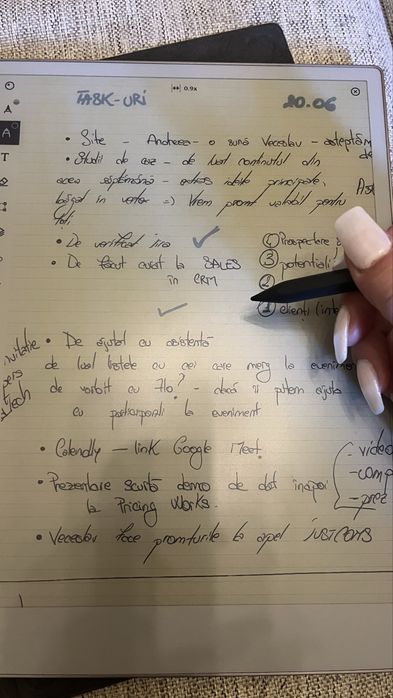 0.9x
TASK-URI
20.06
• Site - Andreea - o sună Veceslav - așteptăm
• Studii de caz - de luat conținutul din
acea săptămână - extras ideile principate,
băgat în => Vrem promt valabil pentru
toți
• De verificat jira ✓
• De făcut curat la SALES
în CRM
✓
④ Prospectare
③ potențiali
②
① clienți (int
• De ajutat cu asistentă
de luat listele cu cei care merg la evenimen
de vorbit cu Flo? - dacă îi putem ajuta
cu participanții la eveniment
• Calendly — link Google Meet.
• Prezentare scurtă demo de dat înapoi
la Pricing Works.
- video
- comp
- prez
• Veceslav face promturile la apel JUSTCOMS